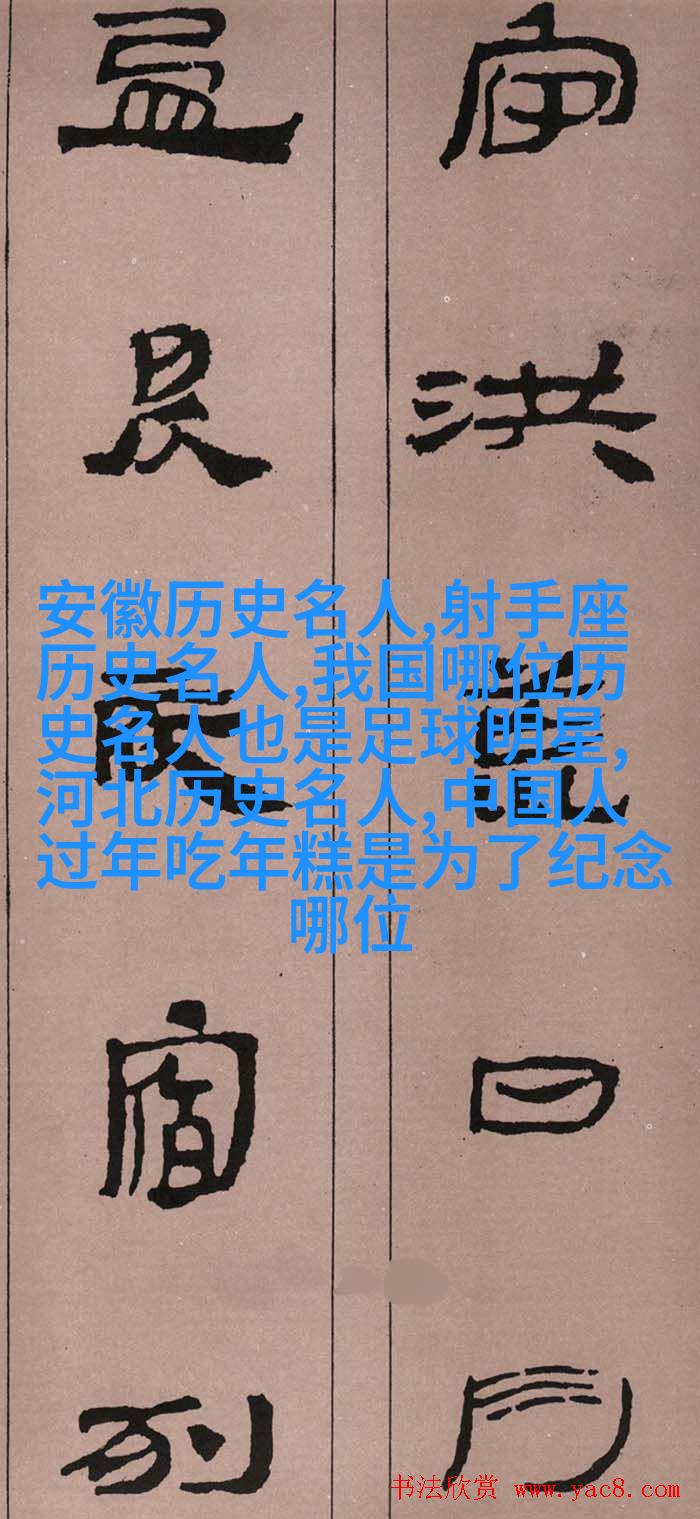 宇洪荒日月
盈昃辰宿列
安徽历史名人,射手座
历史名人,我国哪位历
史名人也是足球明星,
河北历史名人,中国人
过年吃年糕是为了纪念
哪位
书法欣赏 www.yac8.com